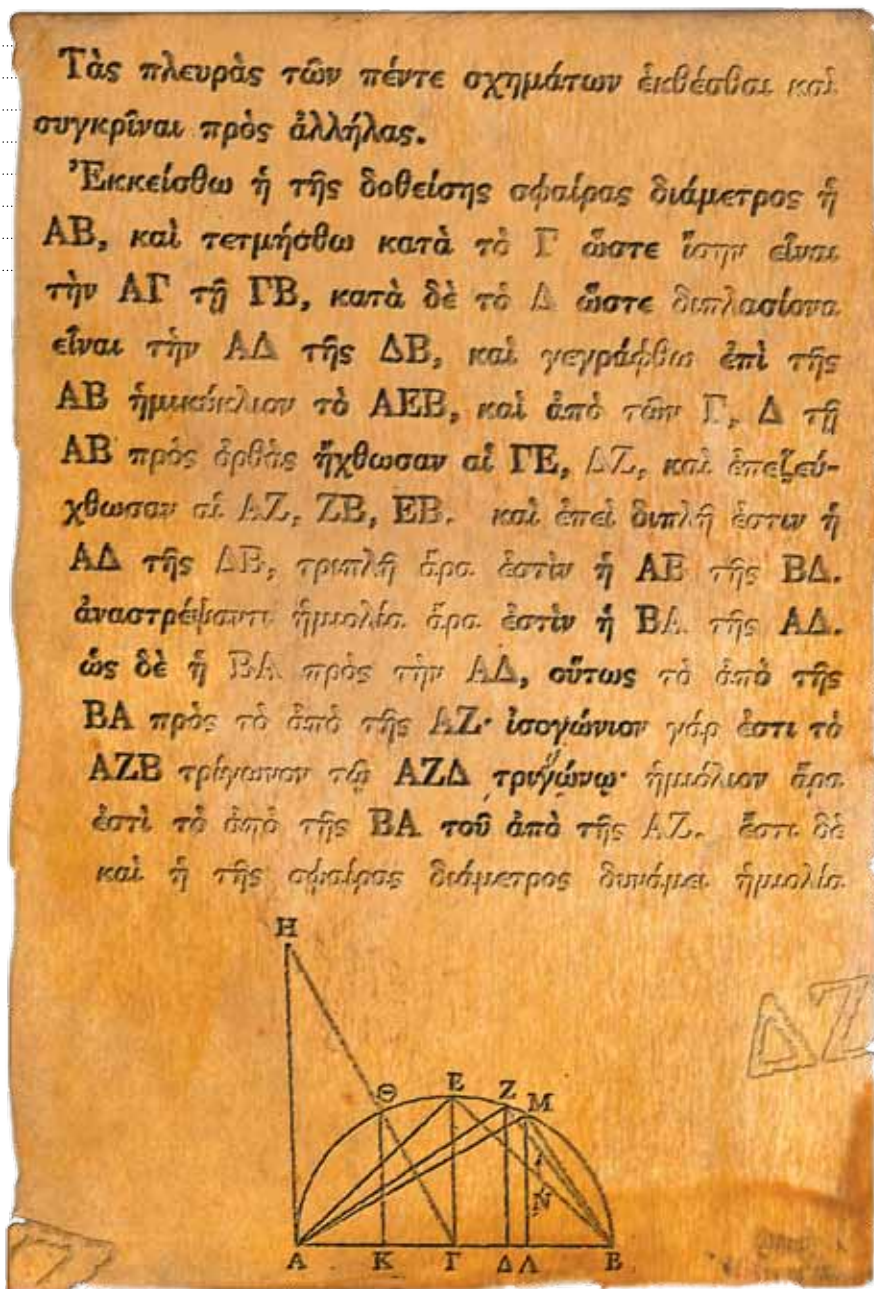 Τὰς πλευρὰς τῶν πέντε σχημάτων ἐκθέσθαι καὶ
συγκρῖναι πρὸς ἀλλήλας.
Ἐκκείσθω ἡ τῆς δοθείσης σφαίρας διάμετρος ἡ
ΑΒ, καὶ τετμήσθω κατὰ τὸ Γ ὥστε ἴσην εἶναι
τὴν ΑΓ τῇ ΓΒ, κατὰ δὲ τὸ Δ ὥστε διπλασίονα
εἶναι τὴν ΑΔ τῆς ΔΒ, καὶ γεγράφθω ἐπὶ τῆς
ΑΒ ἡμικύκλιον τὸ ΑΕΒ, καὶ ἀπὸ τῶν Γ, Δ τῇ
ΑΒ πρὸς ὀρθὰς ἤχθωσαν αἱ ΓΕ, ΔΖ, καὶ ἐπεζεύ-
χθωσαν αἱ ΑΖ, ΖΒ, ΕΒ. καὶ ἐπεὶ διπλῆ ἐστιν ἡ
ΑΔ τῆς ΔΒ, τριπλῆ ἄρα ἐστὶν ἡ ΑΒ τῆς ΒΔ.
ἀναστρέψαντι ἡμιολία ἄρα ἐστὶν ἡ ΒΑ τῆς ΑΔ.
ὡς δὲ ἡ ΒΑ πρὸς τὴν ΑΔ, οὕτως τὸ ἀπὸ τῆς
ΒΑ πρὸς τὸ ἀπὸ τῆς ΑΖ· ἰσογώνιον γάρ ἐστι τὸ
ΑΖΒ τρίγωνον τῷ ΑΖΔ τριγώνῳ· ἡμιόλιον ἄρα
ἐστὶ τὸ ἀπὸ τῆς ΒΑ τοῦ ἀπὸ τῆς ΑΖ. ἔστι δὲ
καὶ ἡ τῆς σφαίρας διάμετρος δυνάμει ἡμιολία
Η
ΔΖ
Θ Ε Ζ Μ
Ν
Α Κ Γ Δ Λ Β